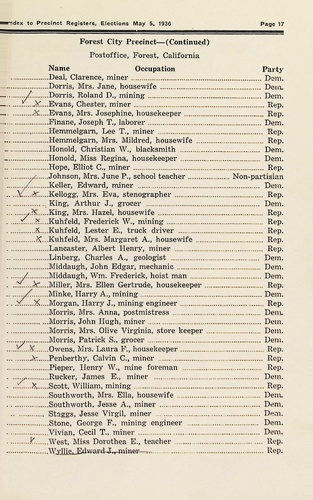 ndex to Precinct Registers, Elections May 5, 1936 Page 17
Forest City Precinct—(Continued)
Postoffice, Forest, California
Name Occupation Party
Deal, Clarence, miner Dem.
Dorris, Mrs. Jane, housewife Dem.
Dorris, Roland D., mining Dem.
Evans, Chester, miner Rep.
Evans, Mrs. Josephine, housekeeper Rep.
Finane, Joseph T., laborer Dem.
Hemmelgarn, Lee T., miner Rep.
Hemmelgarn, Mrs. Mildred, housewife Rep.
Honold, Christian W., blacksmith Dem.
Honold, Miss Regina, housekeeper Dem.
Hope, Elliot C., miner Rep.
Johnson, Mrs. June P., school teacher Non-partisan
Keller, Edward, miner Dem.
Kellogg, Mrs. Eva, stenographer Rep.
King, Arthur J., grocer Dem.
King, Mrs. Hazel, housewife Rep.
Kuhfeld, Frederick W., mining Rep.
Kuhfeld, Lester E., truck driver Rep.
Kuhfeld, Mrs. Margaret A., housewife Rep.
Lancaster, Albert Henry, miner Rep.
Linberg, Charles A., geologist Dem.
Middaugh, John Edgar, mechanic Dem.
Middaugh, Wm. Frederick, hoist man Dem.
Miller, Mrs. Ellen Gertrude, housekeeper Rep.
Minke, Harry A., mining Dem.
Morgan, Harry J., mining engineer Rep.
Morris, Mrs. Anna, postmistress Dem.
Morris, John Hugh, miner Dem.
Morris, Mrs. Olive Virginia, store keeper Dem.
Morris, Patrick S., grocer Dem.
Owens, Mrs. Laura F., housekeeper Rep.
Penberthy, Calvin C., miner Rep.
Pieper, Henry W., mine foreman Rep.
Rucker, James E., miner Dem.
Scott, William, mining Rep.
Southworth, Mrs. Ella, housewife Dem.
Southworth, Jesse A., miner Dem.
Staggs, Jesse Virgil, miner Dem.
Stone, George F., mining engineer Dem.
Vivian, Cecil T., miner Dem.
West, Miss Dorothea E., teacher Rep.
Wyllie, Edward J., miner Rep.